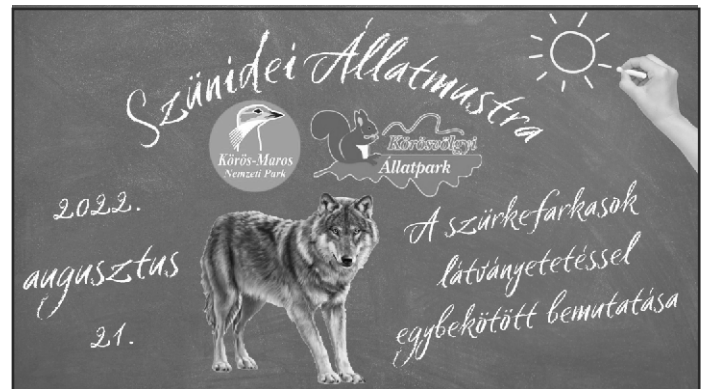 Szünidei Állatmustra
Körös-Maros
Nemzeti Park
Körösvölgyi
Állatpark
2022.
augusztus
21.
A szürkefarkasok
látványetetéssel
egybekötött bemutatása